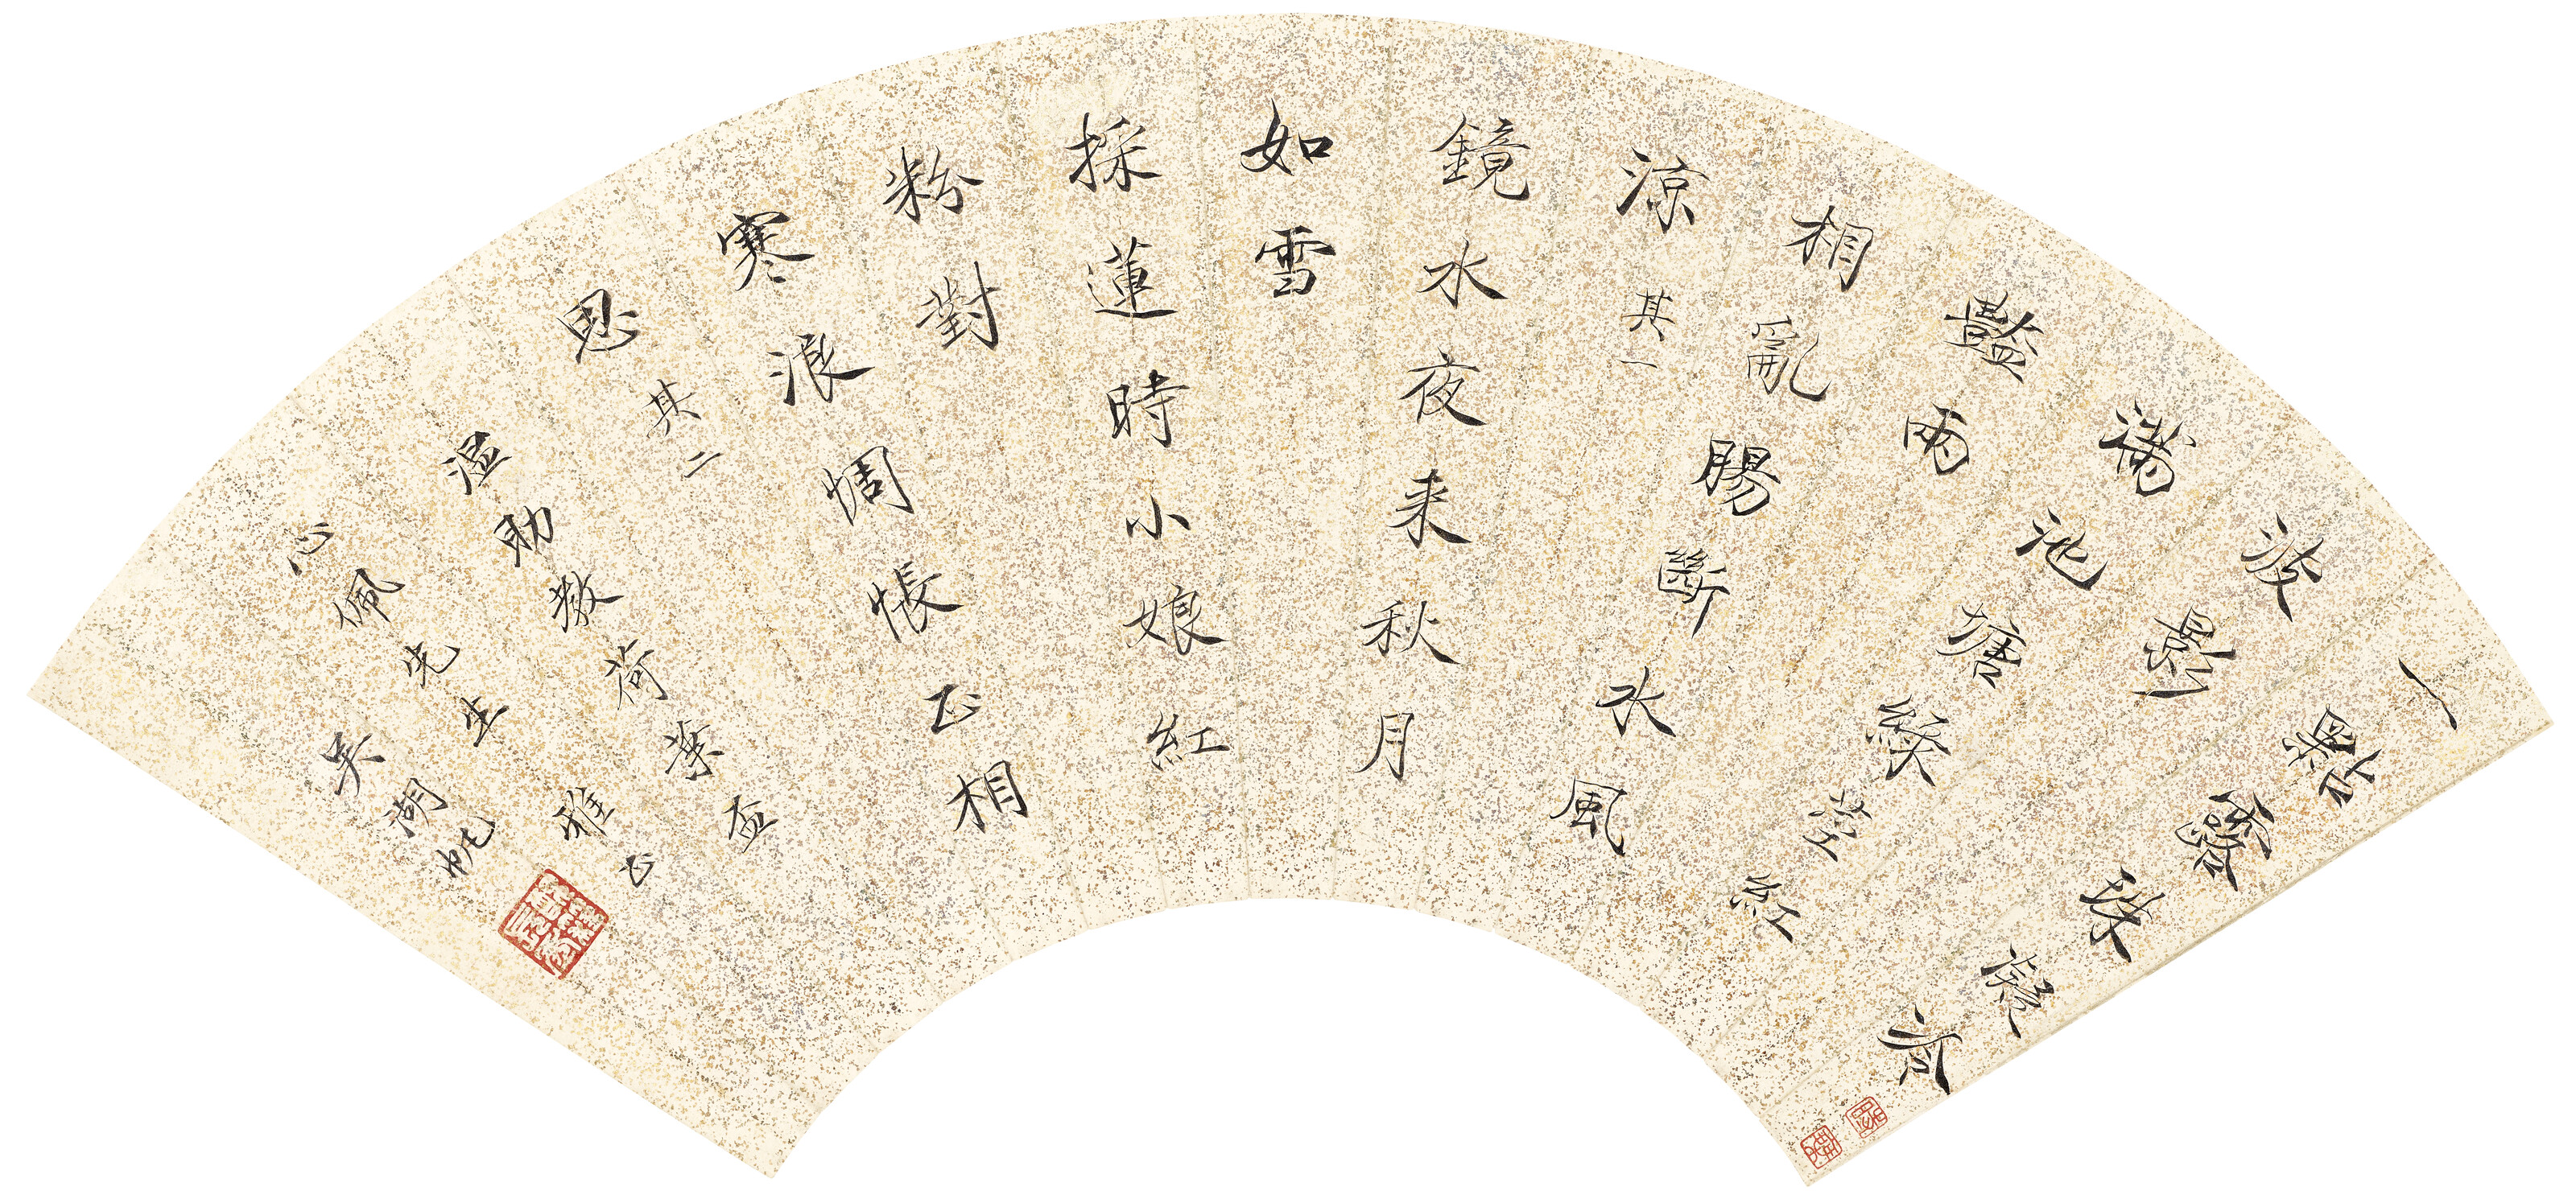 一點露珠凝冷
波影
滿池塘綠莖紅
豔兩
相亂腸斷水風
涼 其一
鏡水夜来秋月
如雪
採蓮時小娘紅
粉對
寒浪惆悵正相
思 其二
溫助教荷葉盃
心佩先生雅正
吳湖帆